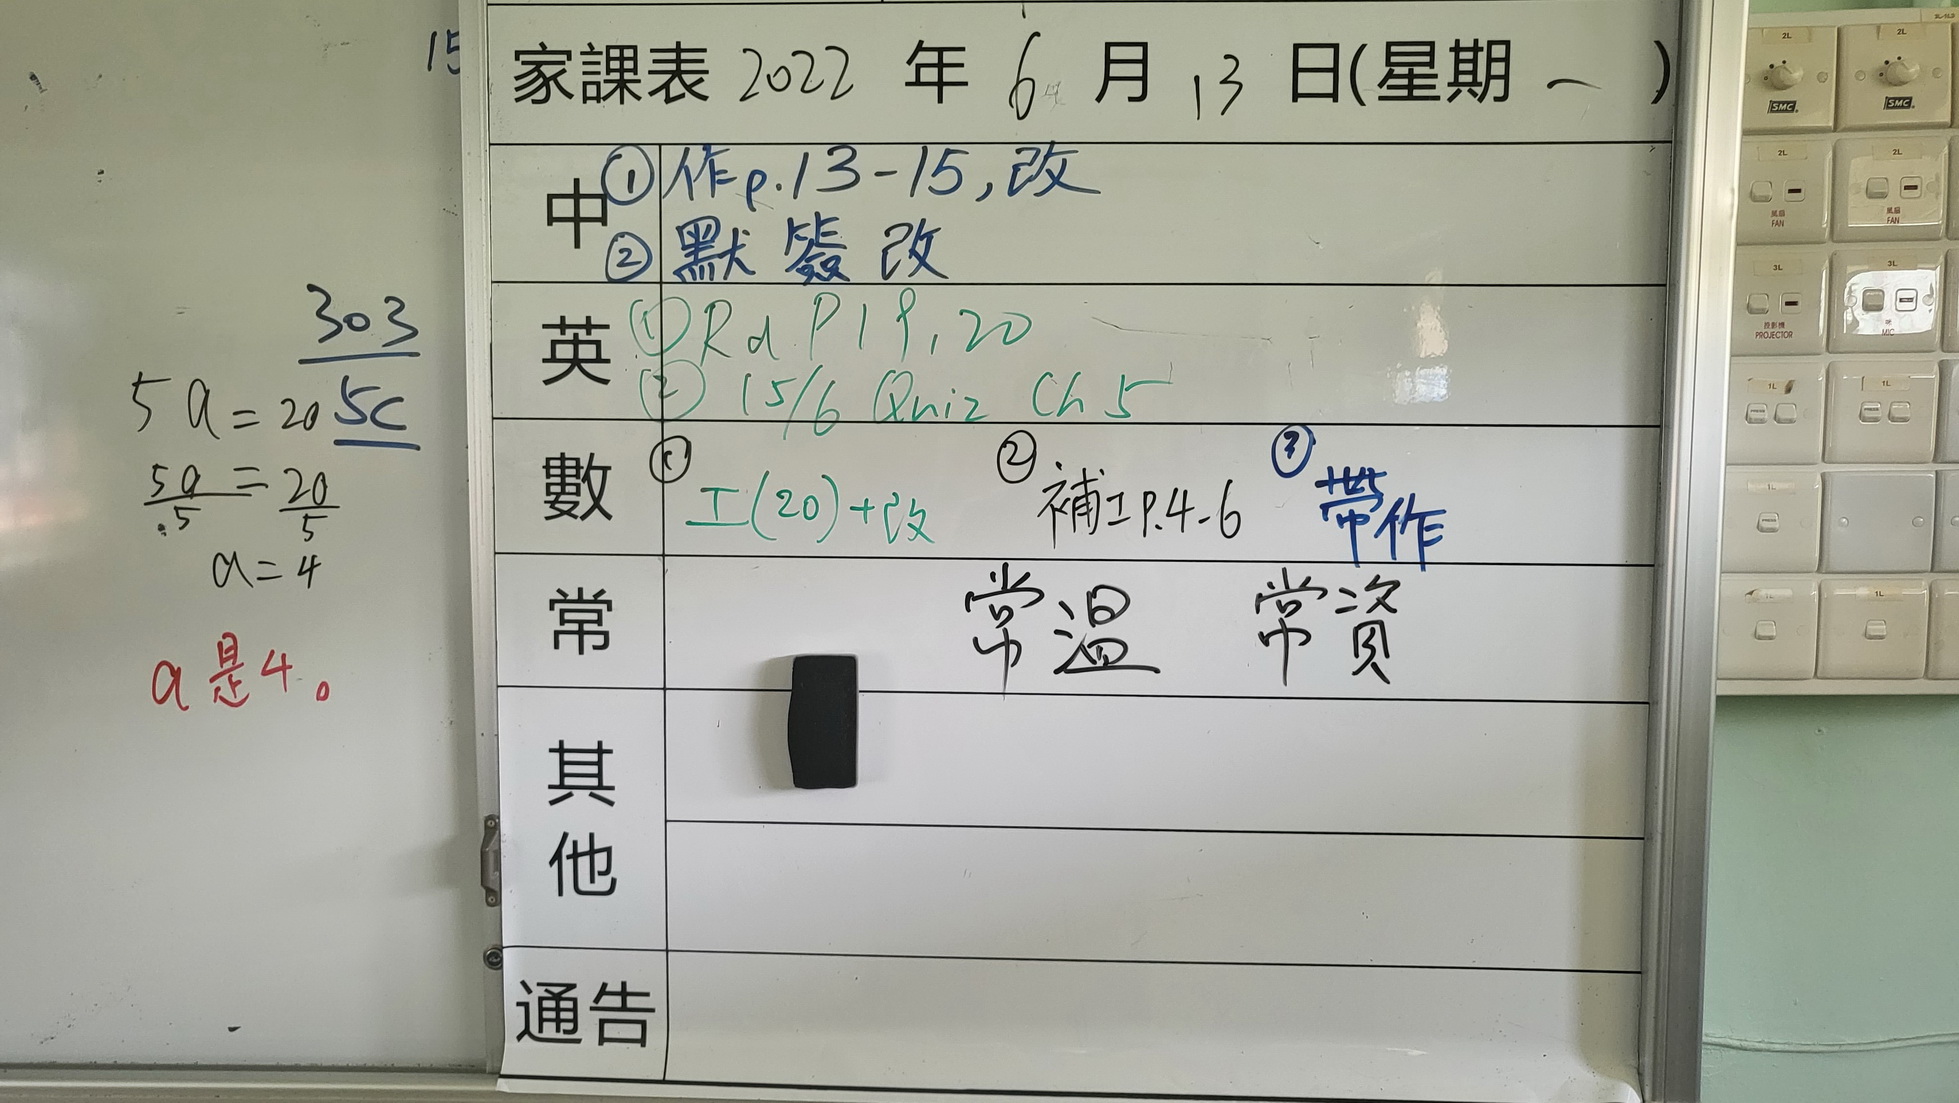 15
303
5C
5a = 20
5a/5 = 20/5
a = 4
a是4。
家課表 2022 年 6 月 13 日(星期 一 )
中 ① 作p.13-15,改
② 默 簽 改
英 ① Rd P19,20
② 15/6 Quiz Ch 5
數 ① 工(20)+改 ② 補工P.4-6 ③ 帶作
常 常溫 常資
其他
通告
2L 2L
SMC SMC
2L 2L
風扇 風扇
FAN FAN
3L 3L
投影機 咪
PROJECTOR MIC
1L 1L
1L
1L 1L